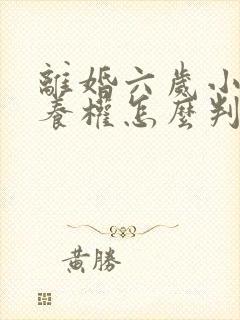 離婚六歲小
養權怎麼判
黃勝